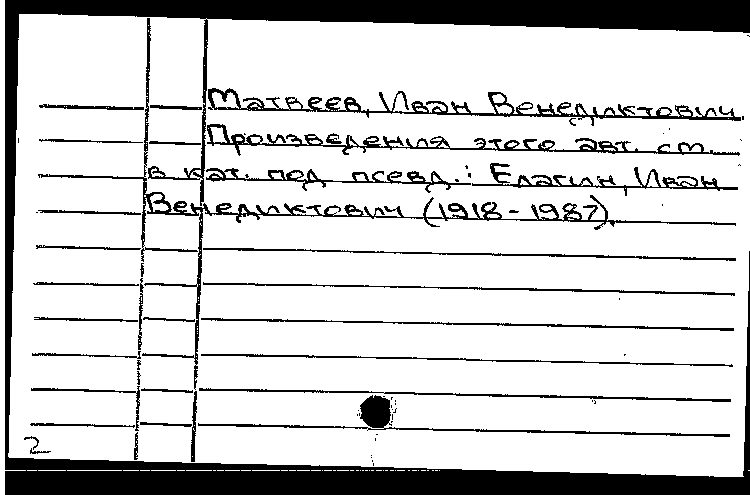 Матвеев, Иван Венедиктович.
Произведения этого авт. см.
в кат. под псевд.: Елагин, Иван
Венедиктович (1918-1987).
2